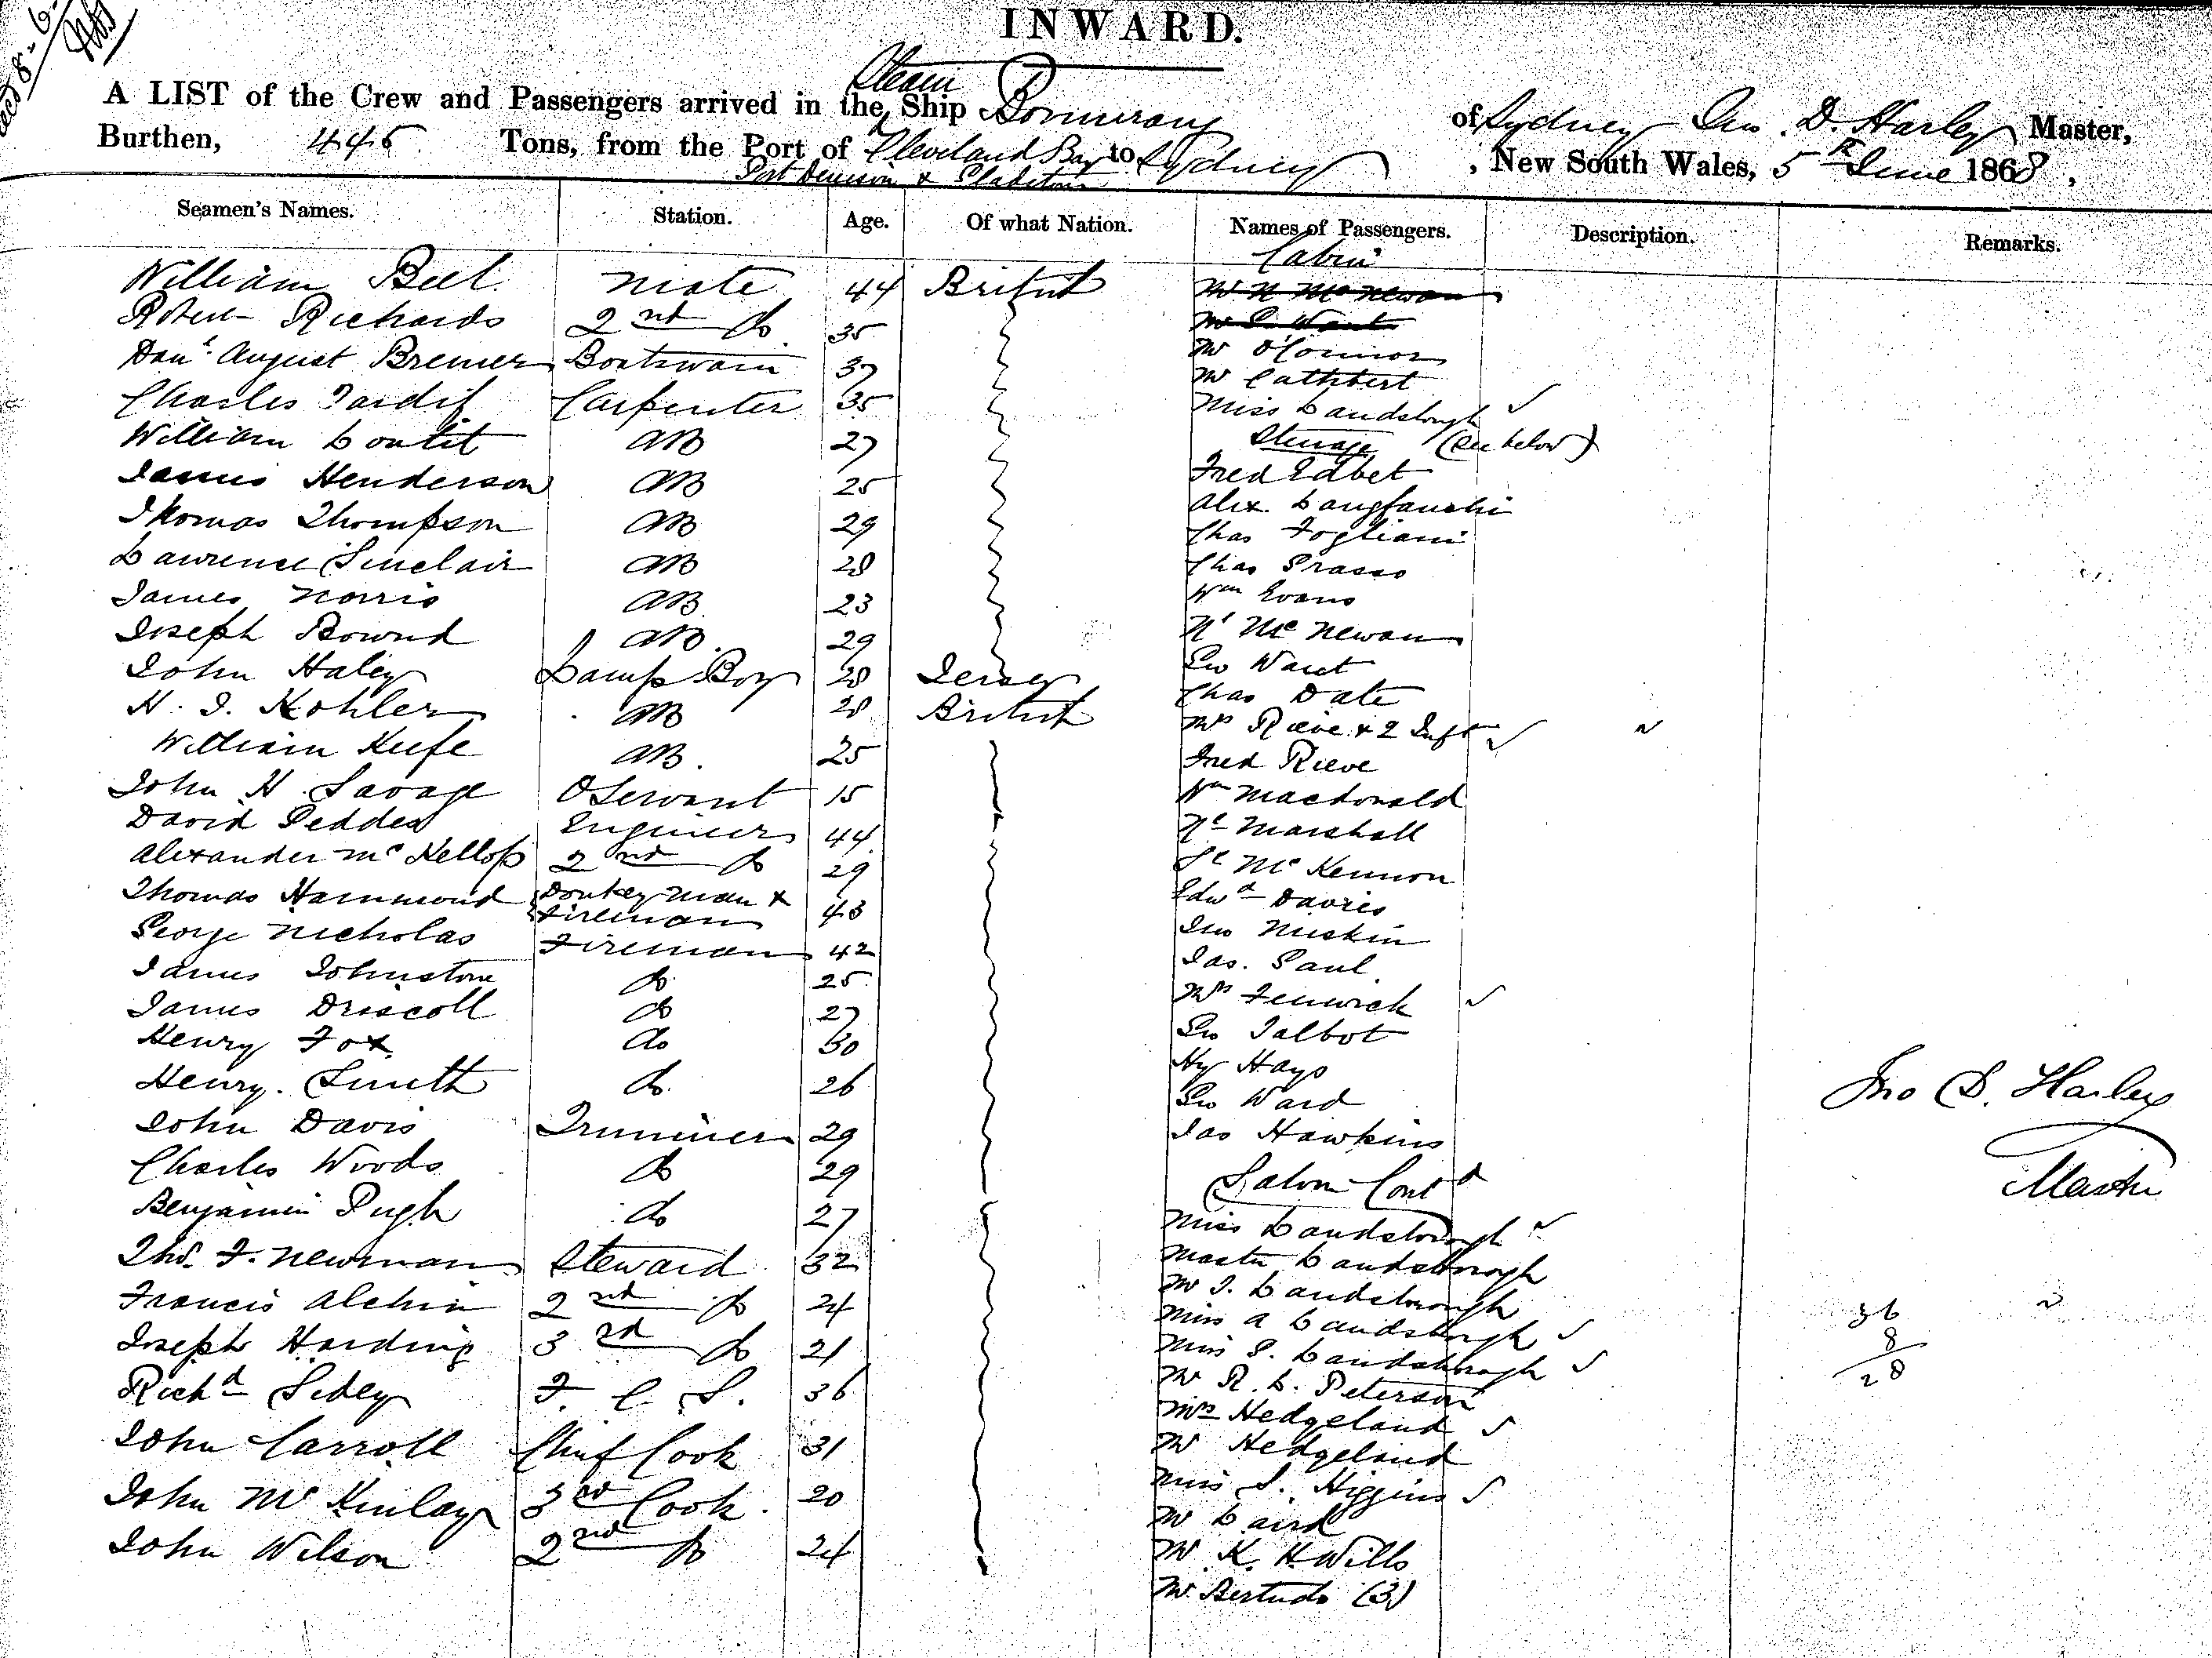 INWARD.
Steam
A LIST of the Crew and Passengers arrived in the Ship Boomerang of Sydney Jno. D. Harley Master,
Burthen, 446 Tons, from the Port of Cleveland Bay to Sydney, New South Wales, 5th June 1868,
Port Denison & Gladstone
Seamen's Names. Station. Age. Of what Nation. Names of Passengers. Description. Remarks.
Cabin
William Bell Mate 44 British
Robert Richards 2nd do 35
Danl. August Bremer Boatswain 37 Mr O'Connor
Charles Tardif Carpenter 35 Mr Cathbert
Miss Landsborough
William Loutit AB 27 Steerage (see below)
James Henderson AB 25 Fred Edbet
Thomas Thompson AB 29 Alex.
Lawrence Sinclair AB 28 Chas Fogliani
Chas Prasso
James Norris AB 23 Wm Evans
Joseph Bownd AB. 29 Mc Newan
John Haley Lamp Boy 28 Jersey Geo Want
H. J. Kohler AB 28 British Chas Date
Mrs Rieve & 2 Inft
William Keefe AB. 25 Fred Rieve
John H Savage O Servant 15 Wm Macdonald
David Peddes Engineer 44 Marshall
Alexander Mc Kellop 2nd do 29 Mc Kennon
Thomas Hammond Donkeyman & Fireman 43 Edwd Davies
George Nicholas Fireman 42 Jno Miskin
James Johnstone do 25 Jas. Paul
James Driscoll do 27 Mrs Fenwick
Henry Fox do 30 Geo Talbot
Henry. Smith do. 26 Hy Hays
Geo Ward
John Davis Trimmer 29 Jas Hawkins
Charles Woods do 29 Saloon Contd
Benjamin Pugh do 27 Miss Landsborough
Thos. F. Newman Steward 32 Master Landsborough
Francis Alchin 2nd do 24 Mr J. Landsborough
Miss A Landsborough
Joseph Harding 3rd do 21 Miss S. Landsborough
Richd Sidey F. C. S. 36 Mr R. L. Peterson
Mrs Hedgeland
John Carroll Chief Cook 31 Mr Hedgeland
John Mc Kinlay 3rd Cook. 20 Miss S. Higgins
Mr Laird
John Wilson 2nd do 24 Mr K. H Wills
Mr. Bertudo (3)
Jno D. Harley
Master
36
8
28